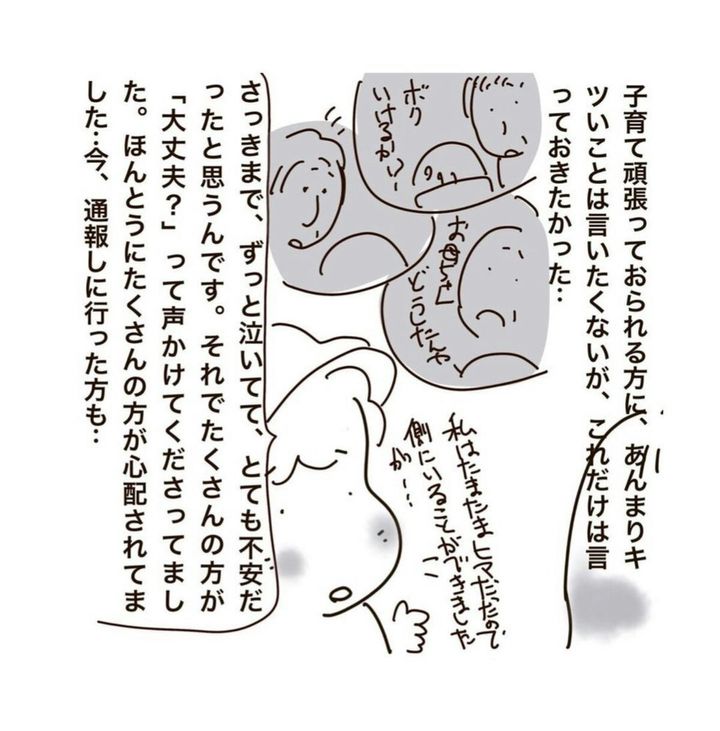 子育て頑張っておられる方に、あんまりキ
ツいことは言いたくないが、これだけは言
っておきたかった…
ボク
いけるか?ー
お母ちゃん
どうしたんや
さっきまで、ずっと泣いてて、とても不安だ
ったと思うんです。それでたくさんの方が
「大丈夫?」って声かけてくださってまし
た。ほんとうにたくさんの方が心配されてま
した…今、通報しに行った方も…
私はたまたまヒマだったので
側にいることができました
が…